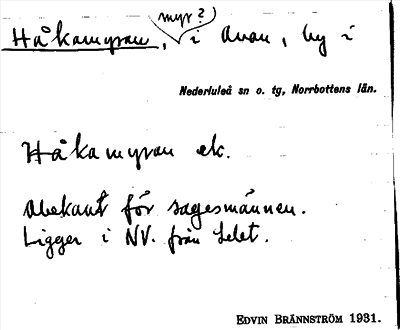 myr?)
Håkamyran, i Avan, by i
Nederluleå sn o. tg, Norrbottens län.
Håkamyran etc.
Obekant för sagesmännen.
Ligger i NV. från Selet.
EDVIN BRÄNNSTRÖM 1931.